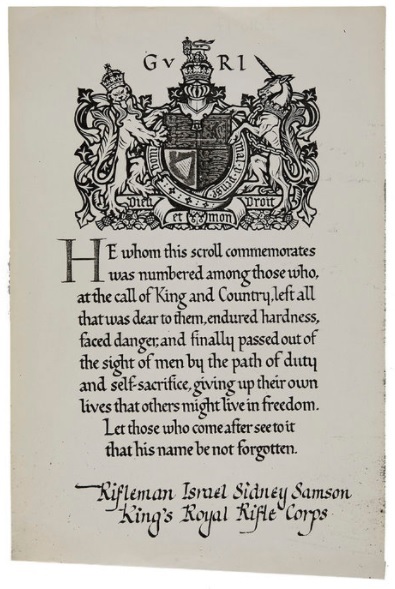 GvRI
honi
mal y pense
Dieu et mon Droit
HE whom this scroll commemorates
was numbered among those who,
at the call of King and Country, left all
that was dear to them, endured hardness,
faced danger, and finally passed out of
the sight of men by the path of duty
and self-sacrifice, giving up their own
lives that others might live in freedom.
Let those who come after see to it
that his name be not forgotten.
Rifleman Israel Sidney Samson
King's Royal Rifle Corps